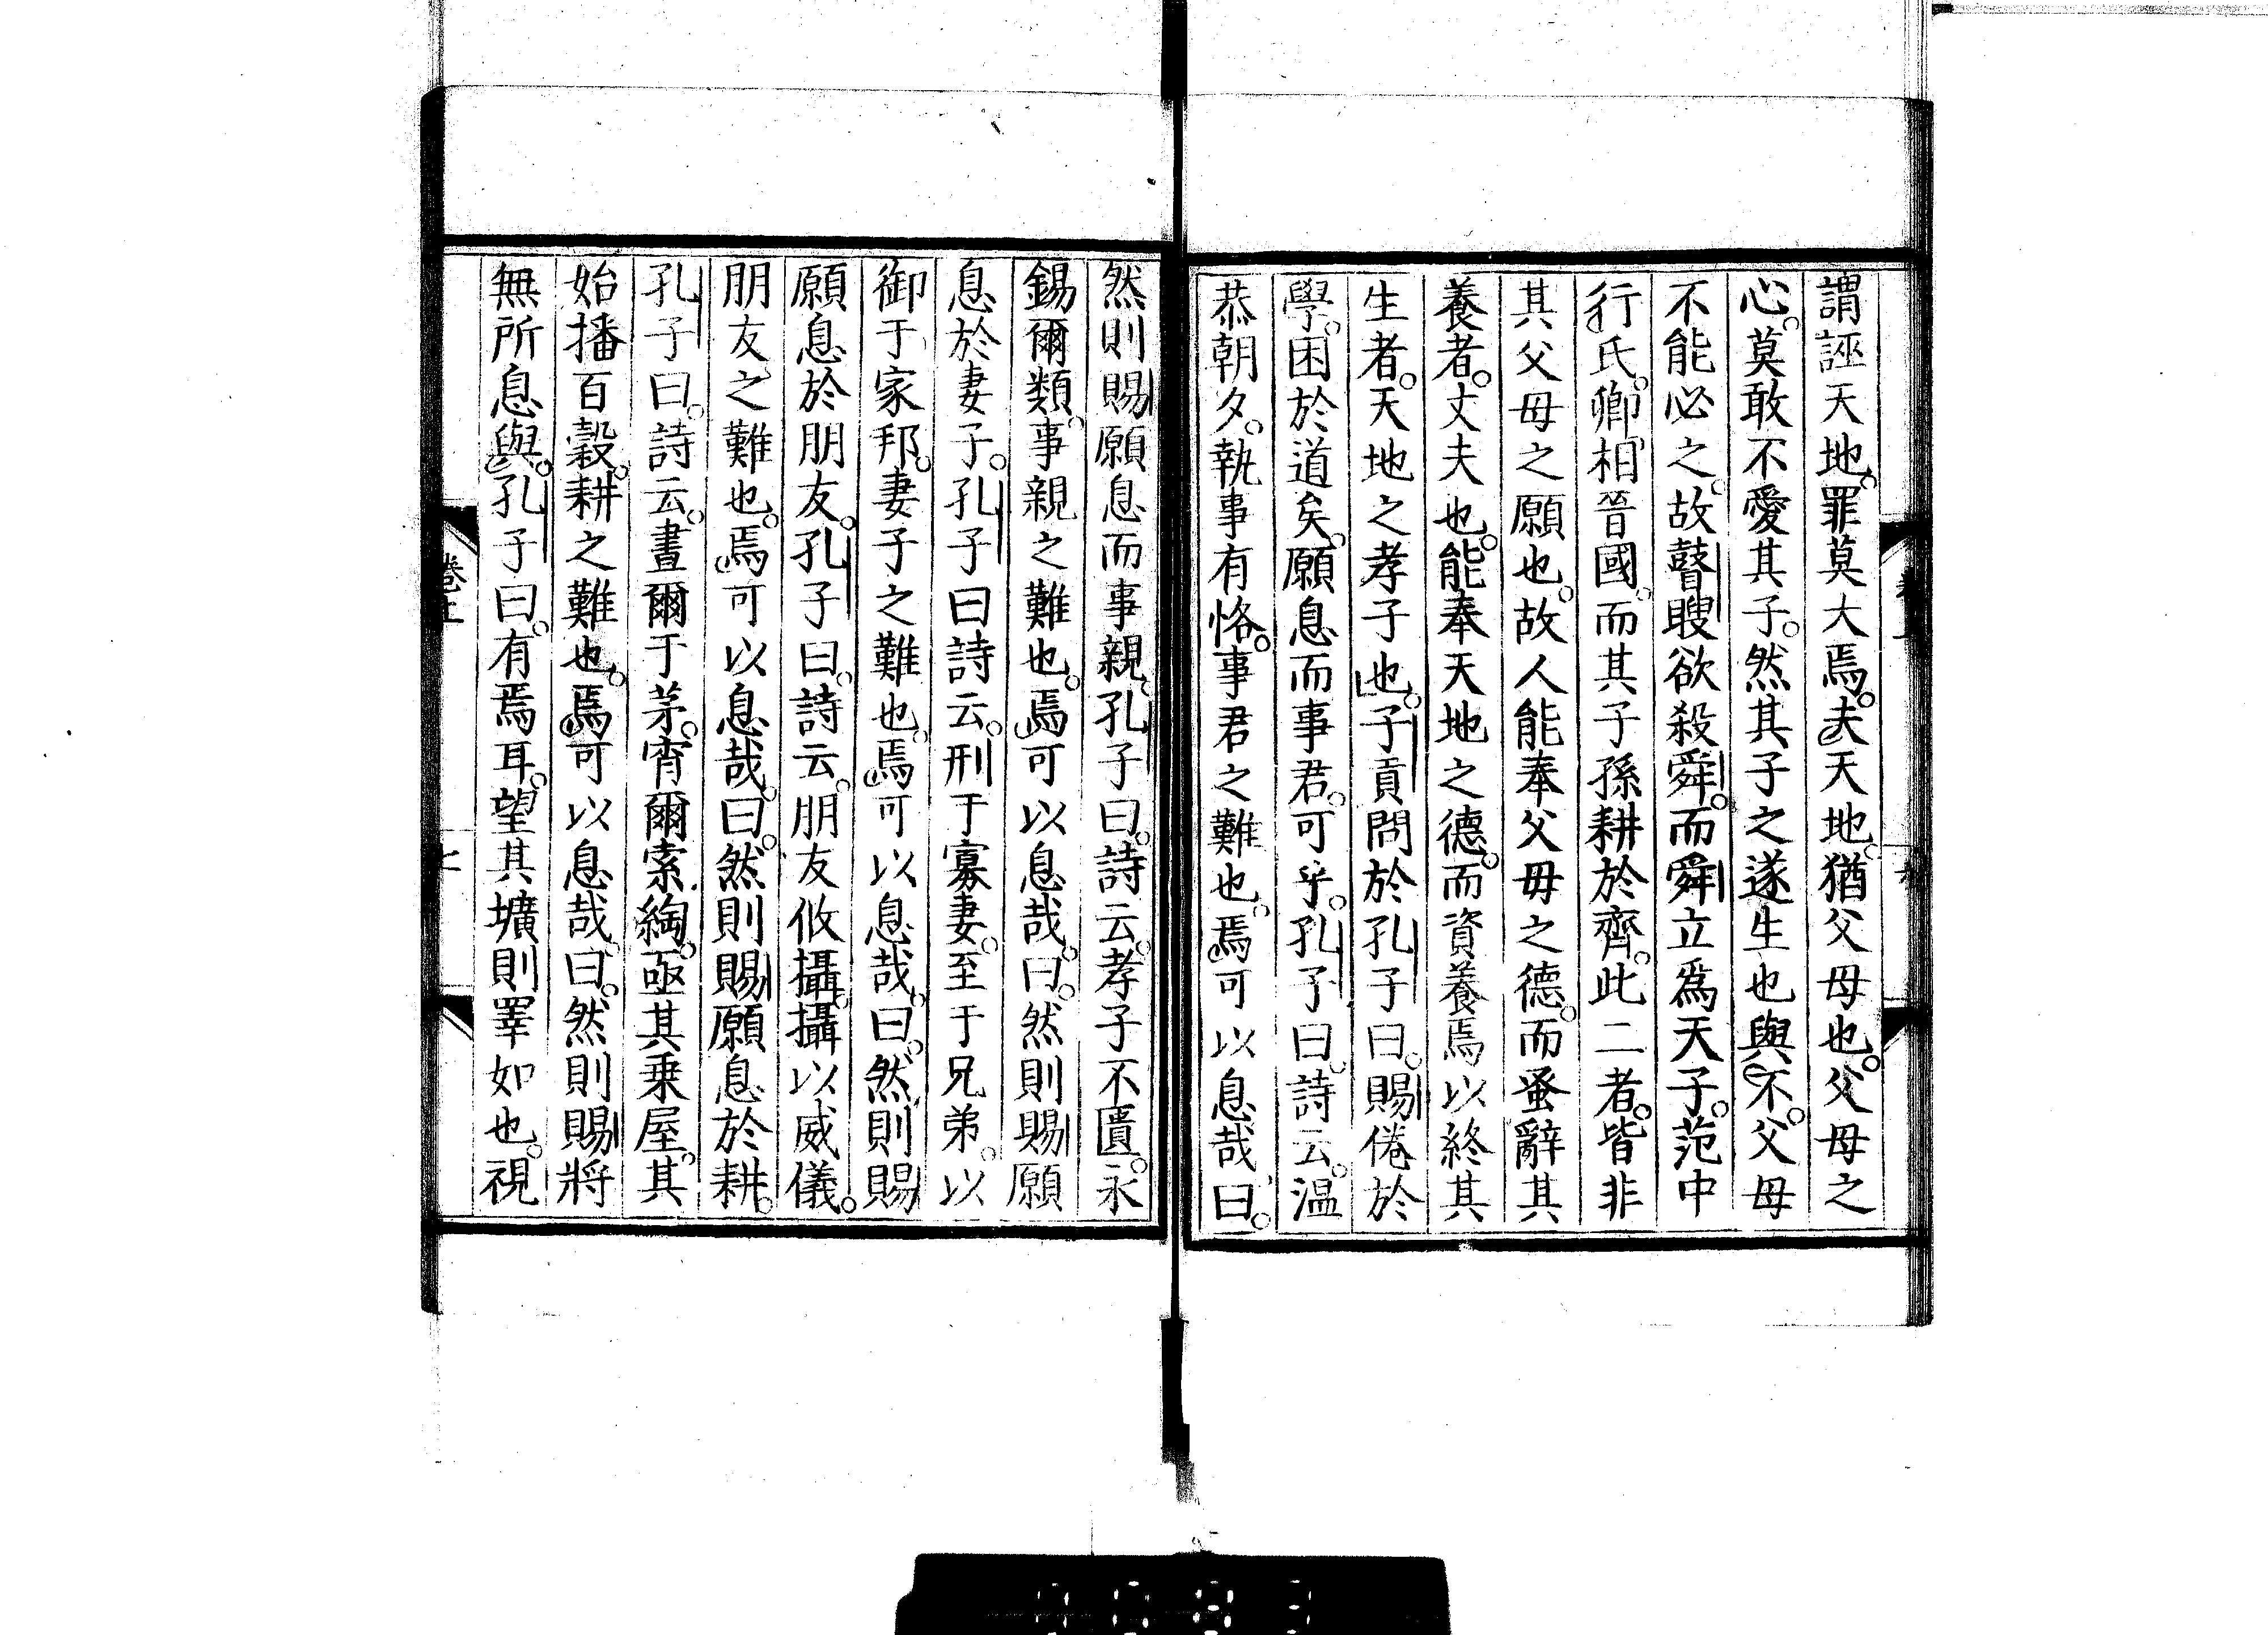 謂誣天地。罪莫大焉。夫天地。猶父母也。父母之
心。莫敢不愛其子。然其子之遂生也與不。父母
不能必之。故瞽瞍欲殺舜。而舜立爲天子。范中
行氏。卿相晉國。而其子孫耕於齊。此二者。皆非
其父母之願也。故人能奉父母之德。而蚤辭其
養者。丈夫也。能奉天地之德。而資養焉以終其
生者。天地之孝子也。子貢問於孔子曰。賜倦於
學。困於道矣。願息而事君。可乎。孔子曰。詩云。温
恭朝夕。執事有恪。事君之難也。焉可以息哉。曰。
然則賜願息而事親。孔子曰。詩云。孝子不匱。永
錫爾類。事親之難也。焉可以息哉。曰。然則賜願
息於妻子。孔子曰詩云。刑于寡妻。至于兄弟。以
御于家邦。妻子之難也。焉可以息哉。曰。然則賜
願息於朋友。孔子曰。詩云。朋友攸攝。攝以威儀。
朋友之難也。焉可以息哉。曰。然則賜願息於耕。
孔子曰。詩云。晝爾于茅。宵爾索綯。亟其乗屋。其
始播百穀。耕之難也。焉可以息哉。曰。然則賜將
無所息與。孔子曰。有焉耳。望其壙則睪如也。視
卷上